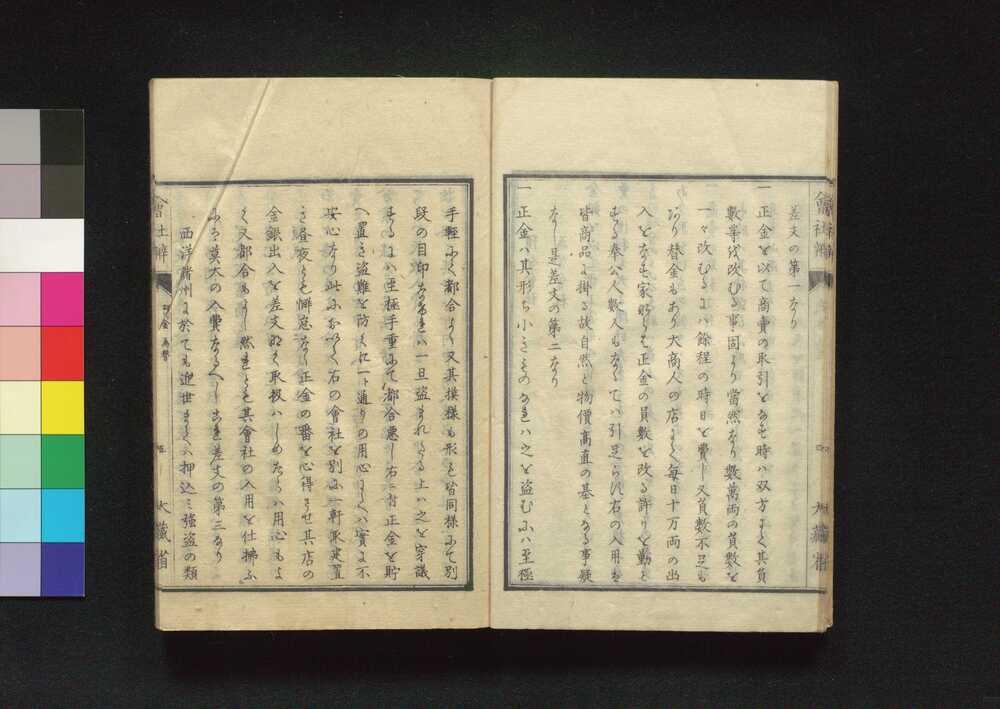 會社辨
四
大藏省
差支の第一なり
一正金を以て商賣の取引をなす時ハ双方にて其員
數等を改むる事固より當然なり數萬両の員數を
一々改むるにハ餘程の時日を費し又員數不足も
あり替金もあり大商人の店にてハ毎日十万両の出
入をなす家にても正金の員數を改る許りを勤と
する奉公人數人もなくてハ引足らず右の入用も
皆商品に掛る故自然と物價高直の基となる事疑
なし是差支の第二なり
一正金ハ其形ち小さきものなれハ之を盗むにハ至極
手軽にて都合よく又其摸様も形も皆同様にて別
段の目印なけれハ一旦盗まれたる上ハ之を穿議
するにハ至極手重にて都合悪し右に付正金を貯
へ置き盗難を防くに一ト通りの用心にてハ實に不
安心なり此におゐて右の會社を別に一軒取建置
き昼夜とも懈怠なく正金の番を心得させ其店の
金銀出入を差支なく取扱ハしめなハ用心もよ
く又都合もよし然れとも其會社の入用を仕拂ふ
にハ莫大の入費なるへしこれ差支の第三なり
西洋諸州に於ても近世まてハ押込ミ強盗の類
會社辨
五
大藏省